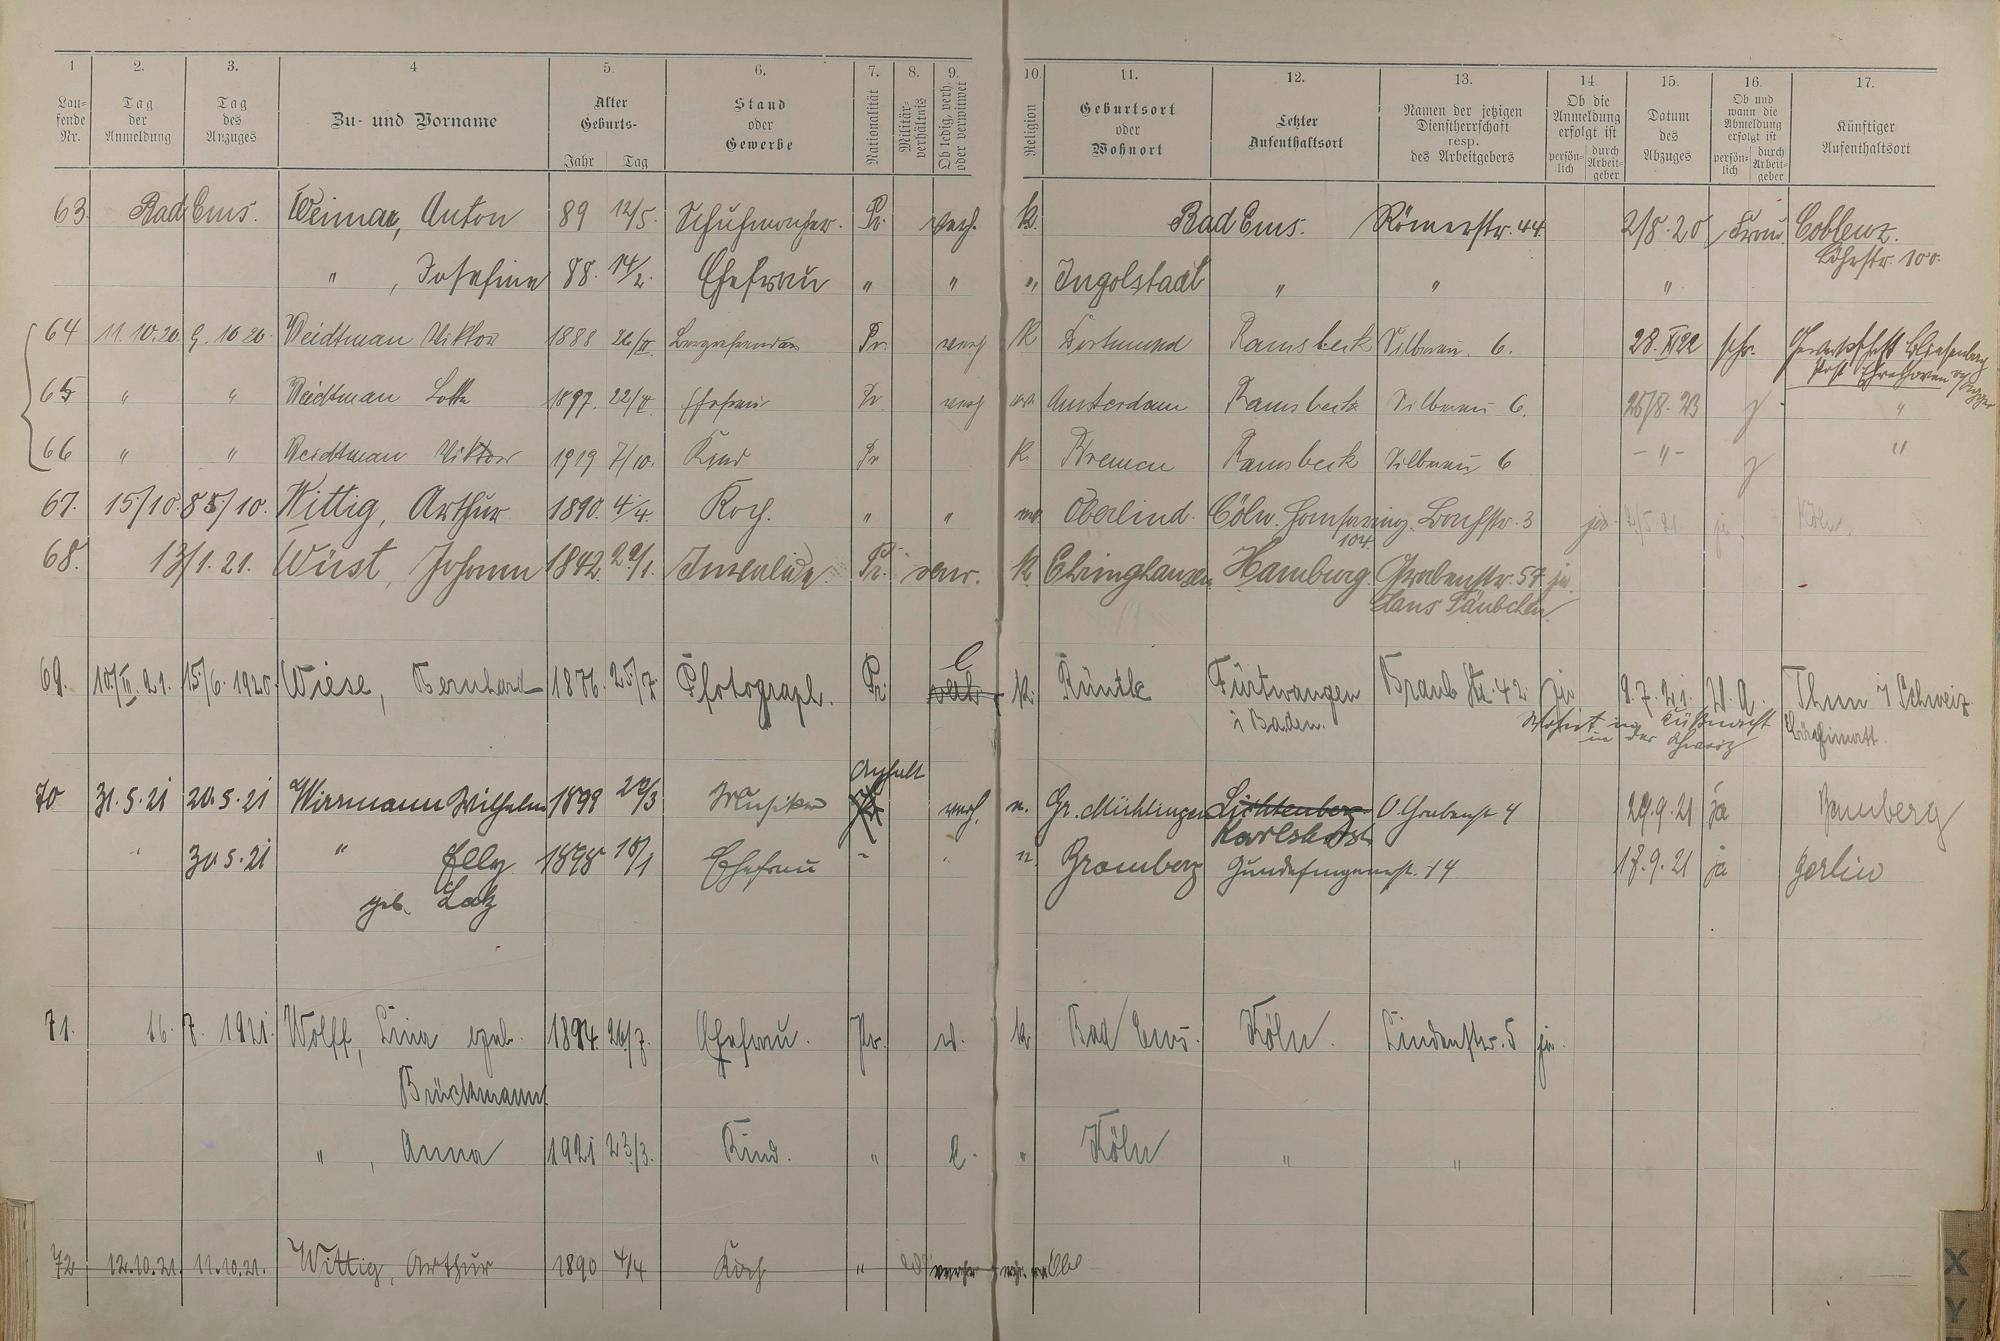 1 2. 3. 4 5. 6. 7. 8. 9. 10. 11. 12. 13. 14. 15. 16. 17.
Lau-fende Nr. Tag der Anmeldung Tag des Anzuges Zu- und Vorname Alter Geburts- Jahr Tag Stand oder Gewerbe Nationalität Militär-verhältnis Ob ledig, verh. oder verwitwet Religion Geburtsort oder Wohnort Letzter Aufenthaltsort Namen der jetzigen Dienstherrschaft resp. des Arbeitgebers Ob die Anmeldung erfolgt ist persön-lich durch Arbeit-geber Datum des Abzuges Ob und wann die Abmeldung erfolgt ist persön-lich durch Arbeit-geber Künftiger Aufenthaltsort
63. Bad Ems. Weimar, Anton 89 12/5. Schuhmacher. Pr. verh. k. Bad Ems. Römerstr. 44. 2/8. 20 Frau Coblenz.
Löhrstr. 100.
" , Josefine 88. 14/2. Ehefrau " " " Ingolstadt " " "
64 11.10.20. 9.10 20. Weidtman Viktor 1888 Pr. verh k Dortmund Ramsbeck Silberau. 6. 28. XI 22
65 " " Weidtman Lotte 1897. Ehefrau Pr verh Amsterdam Ramsbeck Silberau 6. 25/8. 23 "
66 " " Weidtman Viktor 1919 7/10. Kind Pr k. Bremen Ramsbeck Silberau 6 - " - "
67. 15/10. 10. Wittig, Arthur 1890. 4/4. Koch. " " Oberlind. Cöln. 3 Köln.
104.
68. 13/1. 21. Wüst, Johann 1842. 29/1. Invalide Pr. verw. k Ehringhausen Hamburg. Grabenstr. 57. ja
Haus Täubchen.
69. 10/II. 21. 15/6. 1920. Wiese, Bernhard 1876. 25/7. Photograph. Pr. l k. Rünthe Furtwangen Braub Str. 42 ja 9. 7. 21. Thun i Schweiz
i Baden. Wohnt in Küßnacht
in der Schweiz
Anhalt
70 31.5.21 20.5.21 Wirrmann Wilhelm 1899 20/3 Musiker verh. Gr. Mühlingen Lichtenberg O. Grabenst 4 29.9.21 ja Bamberg
Karlshorst
30.5.21 " Elly 1898 18/1 Ehefrau " " Bromberg 14 17.9.21 ja Berlin
geb. Latz
71. 16. 7. 1921. Wolff, Lina geb. 1894. 26/7. Ehefrau. Pr. k. Bad Ems. Köln. Lindenstr. 5 ja.
Brückmann
" , Anna 1921 23/3. Kind. " l. " Köln " "
72 12.10.21. 11.10.21. Wittig, Arthur 1890 4/4 Koch "
X
Y